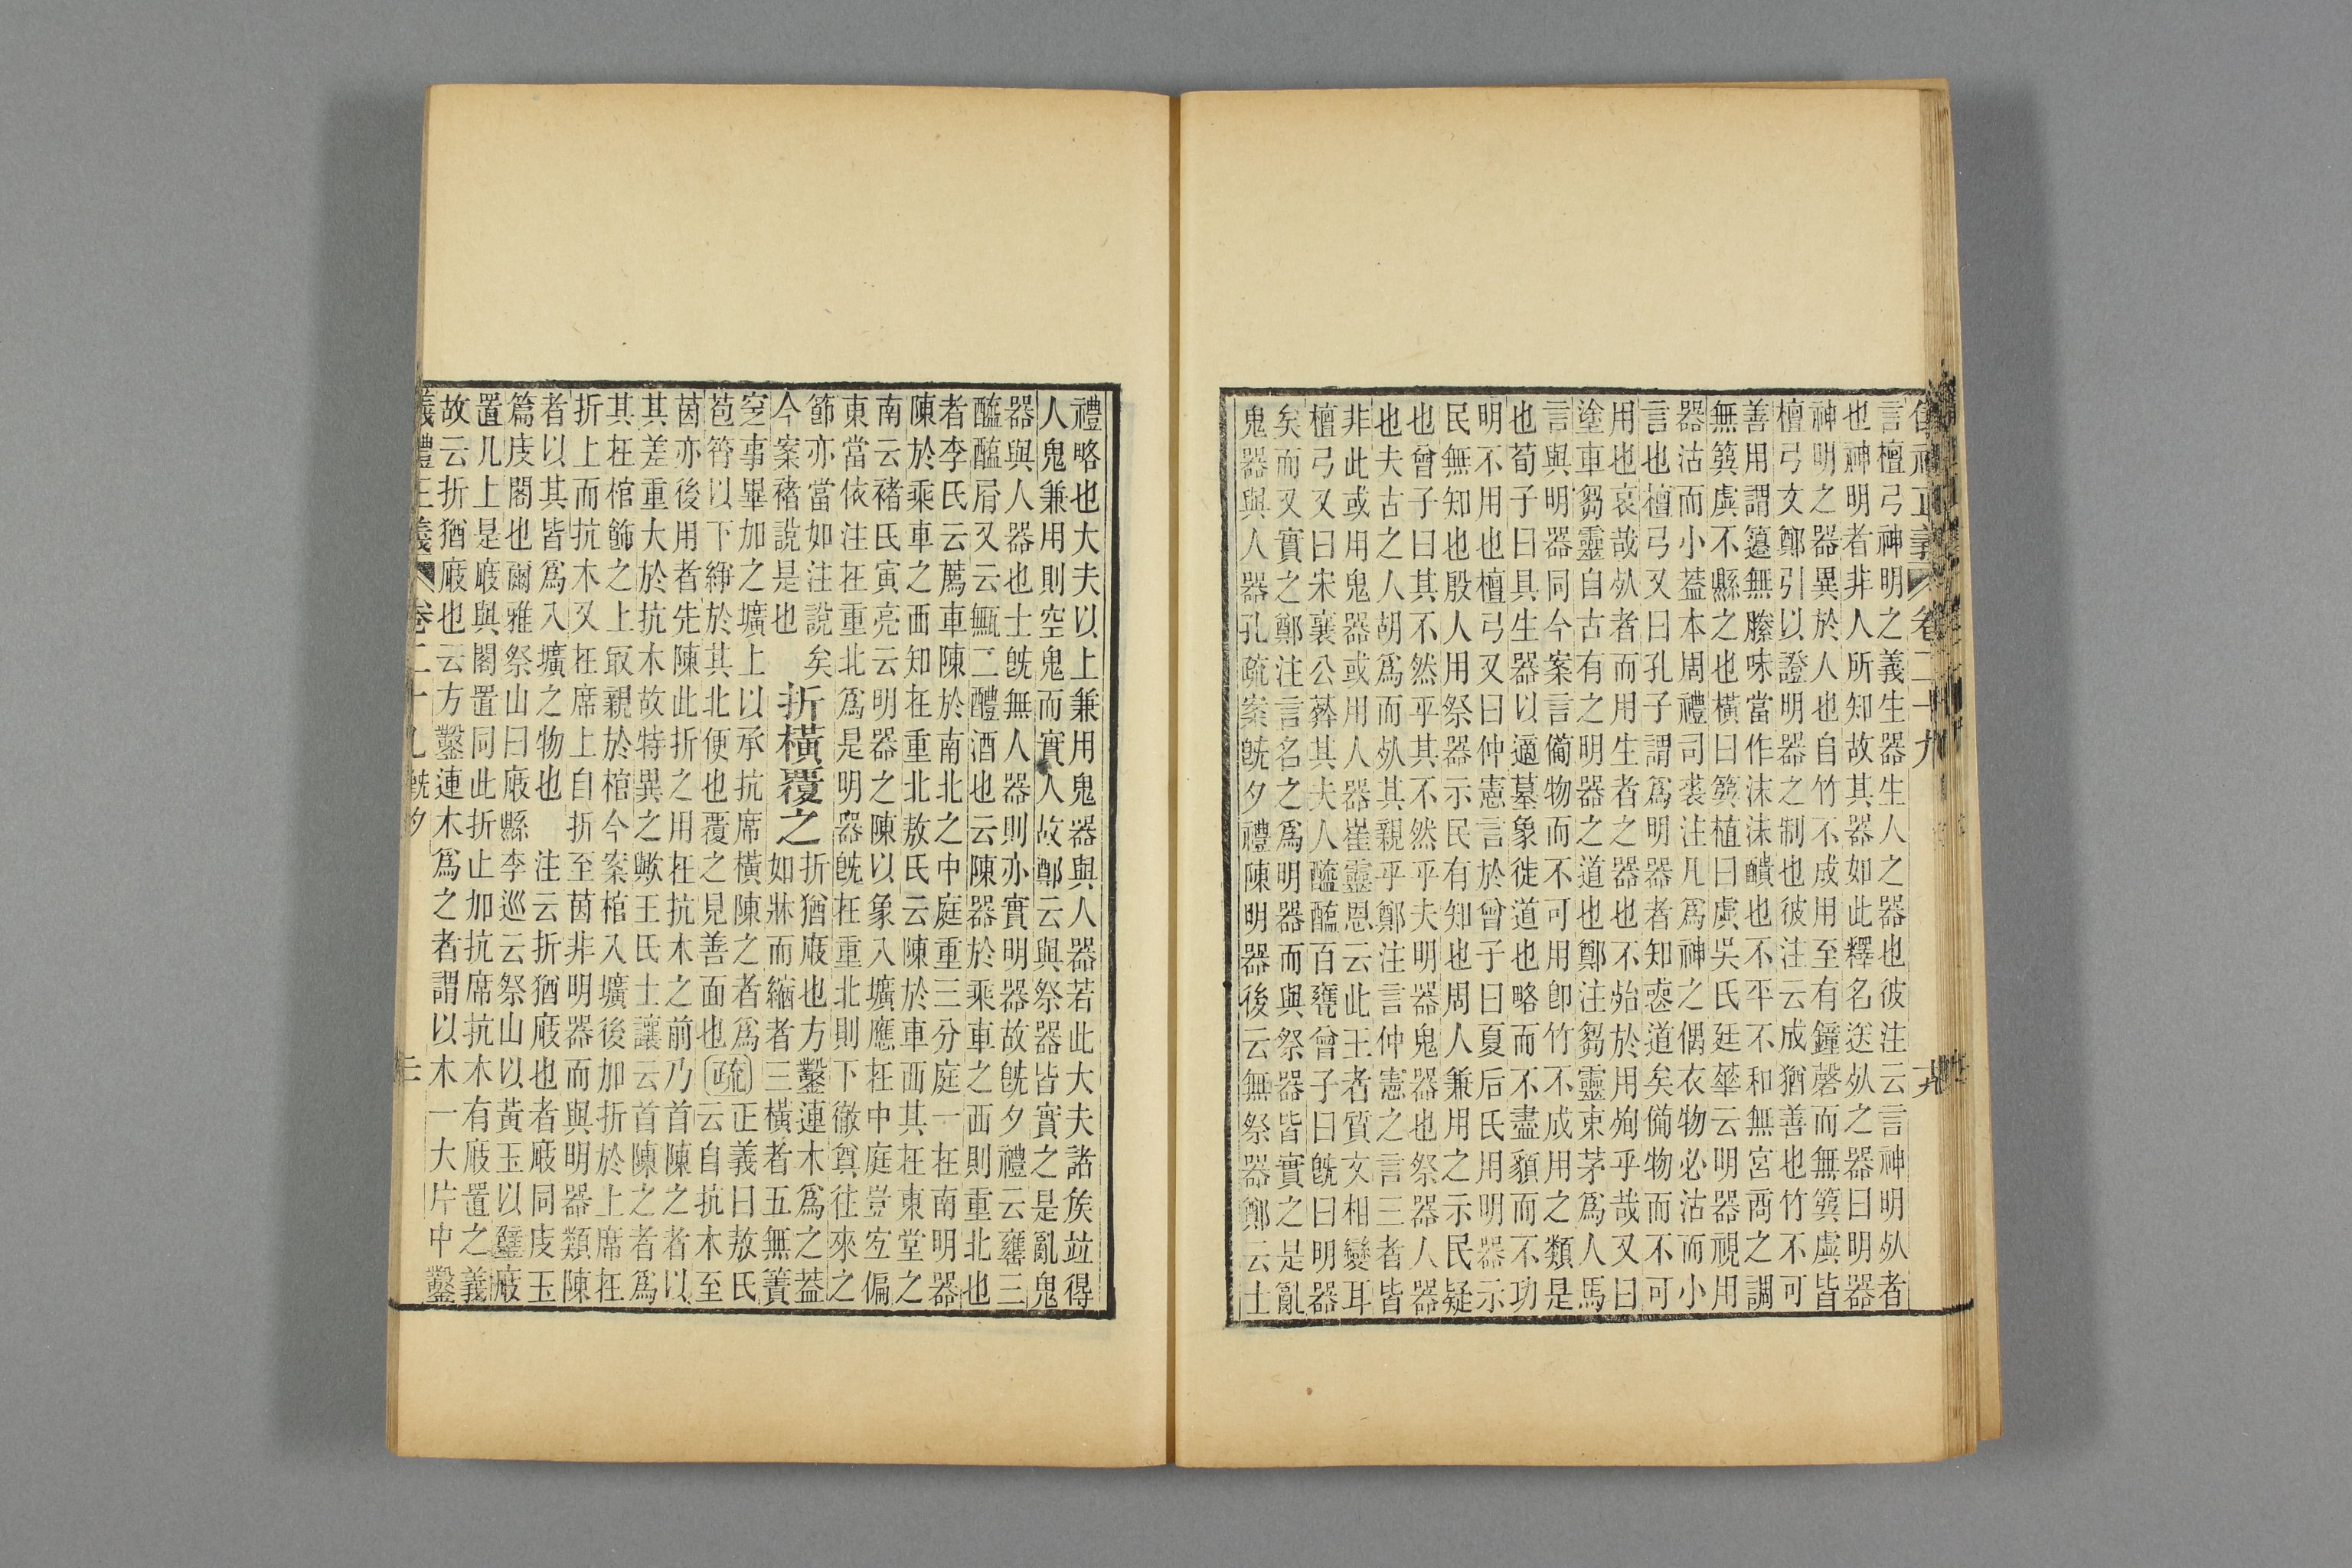 儀禮正義 卷二十九
言檀弓神明之義生器生人之器也彼注云言神明死者
也神明者非人所知故其器如此釋名送死之器曰明器
神明之器異於人也自竹不成用至有鐘磬而無簨虡皆
檀弓文鄭引以證明器之制也彼注云成猶善也竹不可
善用謂籩無縢味當作沬沬靧也不平不和無宮商之調
無簨虡不縣之也橫曰簨植曰虡吳氏廷華云明器視用
器沽而小葢本周禮司裘注凡爲神之偶衣物必沽而小
言也檀弓又曰孔子謂爲明器者知喪道矣備物而不可
用也哀哉死者而用生者之器也不殆於用殉乎哉又曰
塗車芻靈自古有之明器之道也鄭注芻靈束茅爲人馬
言與明器同今案言備物而不可用卽竹不成用之類是
也荀子曰具生器以適墓象徙道也略而不盡貌而不功
明不用也檀弓又曰仲憲言於曾子曰夏后氏用明器示
民無知也殷人用祭器示民有知也周人兼用之示民疑
也曾子曰其不然乎其不然乎夫明器鬼器也祭器人器
也夫古之人胡爲而死其親乎鄭注言仲憲之言三者皆
非此或用鬼器或用人器崔靈恩云此王者質文相變耳
檀弓又曰宋襄公葬其夫人醯醢百甕曾子曰旣曰明器
矣而又實之鄭注言名之爲明器而與祭器皆實之是亂
鬼器與人器孔疏案旣夕禮陳明器後云無祭器鄭云士
禮略也大夫以上兼用鬼器與人器若此大夫諸矦竝得
人鬼兼用則空鬼而實人故鄭云與祭器皆實之是亂鬼
器與人器也士旣無人器則亦實明器故旣夕禮云甕三
醯醢屑又云甒二醴酒也云陳器於乘車之西則重北也
者李氏云薦車陳於南北之中庭重三分庭一在南明器
陳於乘車之西知在重北敖氏云陳於車西其在東堂之
南云褚氏寅亮云明器之陳以象入壙應在中庭豈宜偏
東當依注在重北爲是明器旣在重北則下徹奠往來之
節亦當如注說矣
今案褚說是也
折橫覆之
折猶庪也方鑿連木爲之葢
如牀而縮者三橫者五無簀
窆事畢加之壙上以承抗席橫陳之者爲
苞筲以下綪於其北便也覆之見善面也
疏
正義曰敖氏
云自抗木至
茵亦後用者先陳此折之用在抗木之前乃首陳之者以
其差重大於抗木故特異之歟王氏士讓云首陳之者爲
其在棺飾之上最親於棺今案棺入壙後加折於上席在
折上而抗木又在席上自折至茵非明器而與明器類陳
者以其皆爲入壙之物也 注云折猶庪也者庪同庋玉
篇庋閣也爾雅祭山曰庪縣李巡云祭山以黃玉以璧庪
置几上是庪與閣置同此折止加抗席抗木有庪置之義
故云折猶庪也云方鑿連木爲之者謂以木一大片中鑿
儀禮正義 卷二十九旣夕